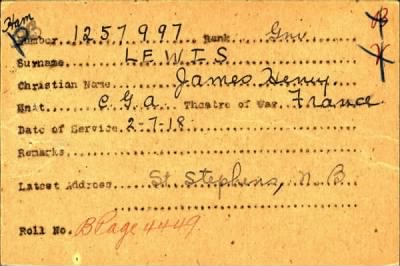 Ham
Number 1257997 Rank Gnr
B
Surname LEWIS
X
Christian Name James Henry
Unit C G A Theatre of War France
Date of Service 2-7-18
Remarks
Latest Address St Stephens, N. B
Roll No. B Page 4449